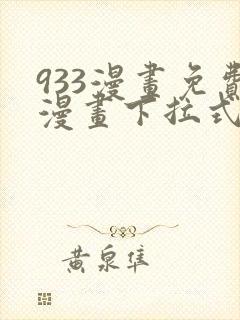 933漫畫免費
漫畫下拉式
黄泉隼